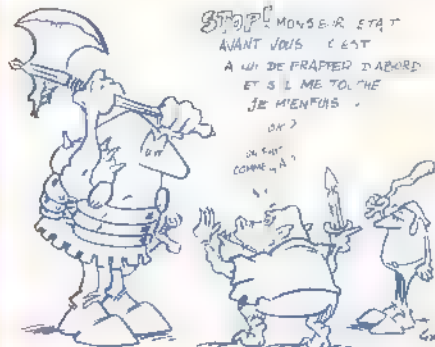 STOP! MONSEUR ETAT
AVANT VOUS C EST
A LUI DE FRAPPER D'ABORD
ET S L ME TOUCHE
JE M'ENFUIS.
OK?
ON FAIT
COMME ÇA?